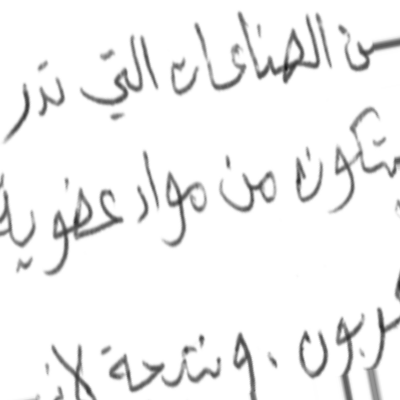 من الصناعات التي تدر
يتكون من مواد عضوية
كربون . ونتيجة لان